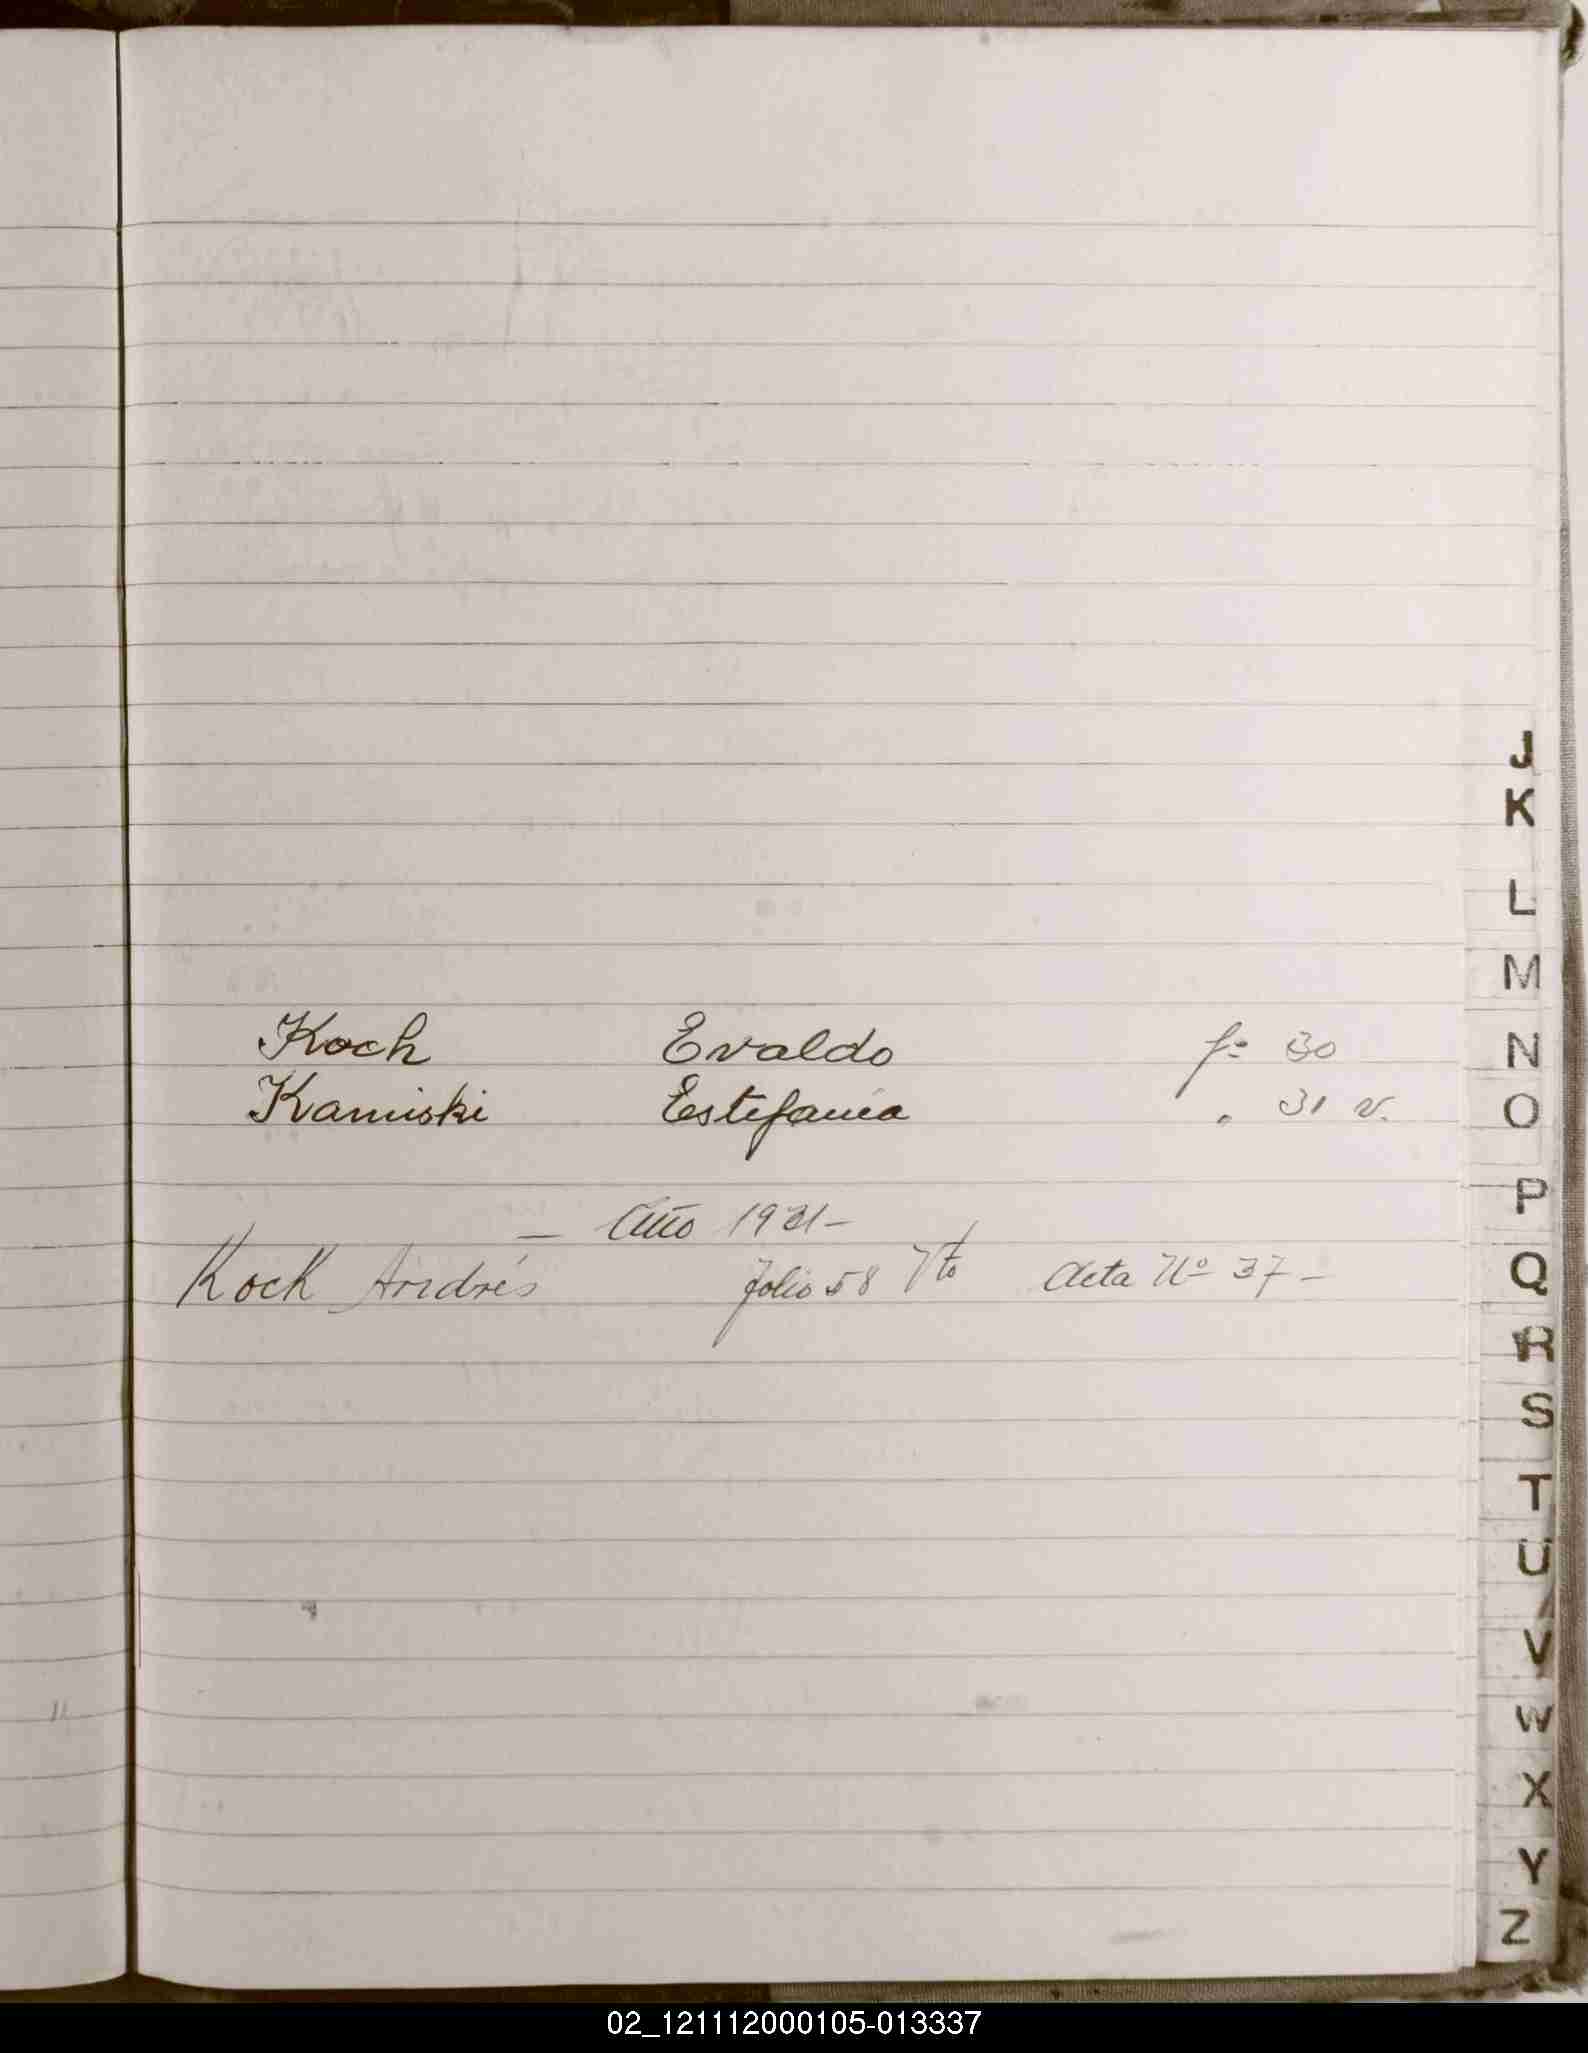 J
K
L
M
Koch Evaldo fº 30
N
Kamiski Estefanía " 31 v.
O
P
— Año 1931 —
Kock Andrés folio 58 Vto Acta Nº 37 —
Q
R
S
T
U
V
W
X
Y
Z
02_121112000105-013337